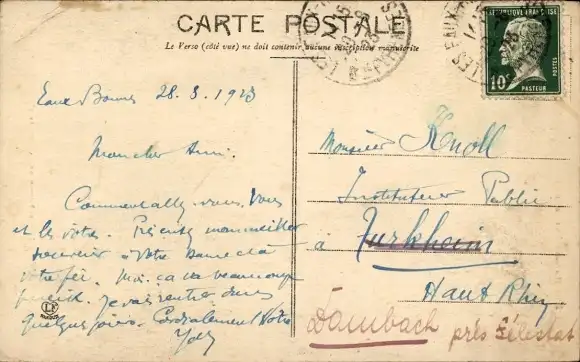 CARTE POSTALE
Le Verso (côté vue) ne doit contenir aucune inscription manuscrite
REPUBLIQUE FRANÇAISE
10
POSTES
PASTEUR
Eaux Bonnes 28.8.1923
Mon cher Ami.
Comment allez vous, Vous
et les vôtres.
souvenir à Votre Dame et à
votre fils. Moi, ça va beaucoup
Je vais rentrer dans
quelques jours. Cordialement Votre
Monsieur Knoll
Instituteur Public
à Turkheim
Haut Rhin
Dambach près Sélestat